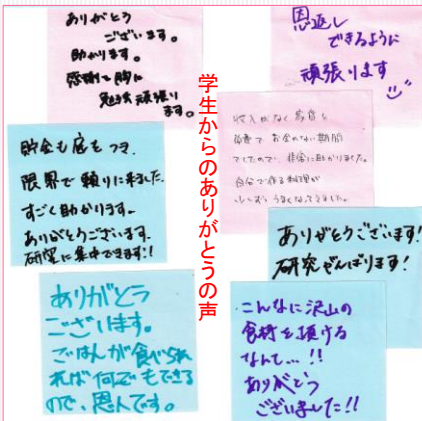 ありがとう
ございます。
助かります。
感謝を胸に
勉強頑張り
ます。
恩返し
できるように
頑張ります
学生からのありがとうの声
貯金も底をつき、
限界で頼りに来ました。
すごく助かります。
ありがとうございます。
研究に集中できます!!
収入がなく家賃と
でお金のない期間
でしたので、非常に助かりました。
自分で作る料理が
うまくなってきました。
ありがとうございます!
研究がんばります!
ありがとう
ございます。
ごはんが食べられ
れば何でもできる
ので、恩人です。
こんなに沢山の
食材を頂ける
なんて…!!
ありがとう
ございました!!